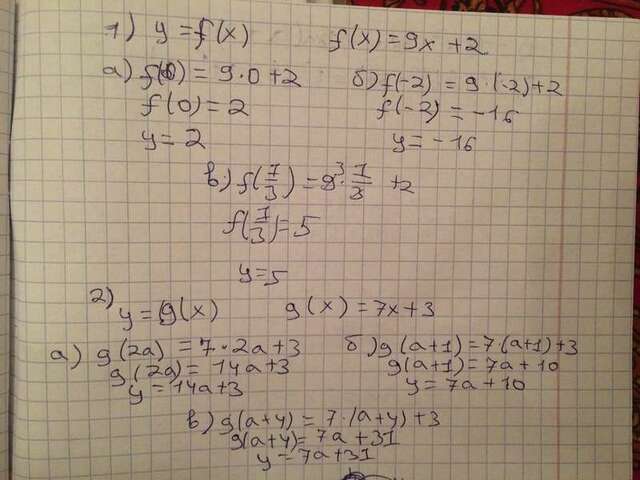 1) y = f(x) f(x) = 9x + 2
а) f(0) = 9·0 + 2 б) f(-2) = 9·(-2) + 2
f(0) = 2 f(-2) = -16
y = 2 y = -16
в) f(1/3) = 9·1/3 + 2
f(1/3) = 5
y = 5
2) y = g(x) g(x) = 7x + 3
а) g(2a) = 7·2a + 3 б) g(a+1) = 7(a+1) + 3
g(2a) = 14a + 3 g(a+1) = 7a + 10
y = 14a + 3 y = 7a + 10
в) g(a+4) = 7·(a+4) + 3
g(a+4) = 7a + 31
y = 7a + 31